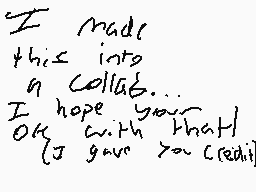 I made
this into
a collab...
I hope your
OK with that!
(I gave you credit)